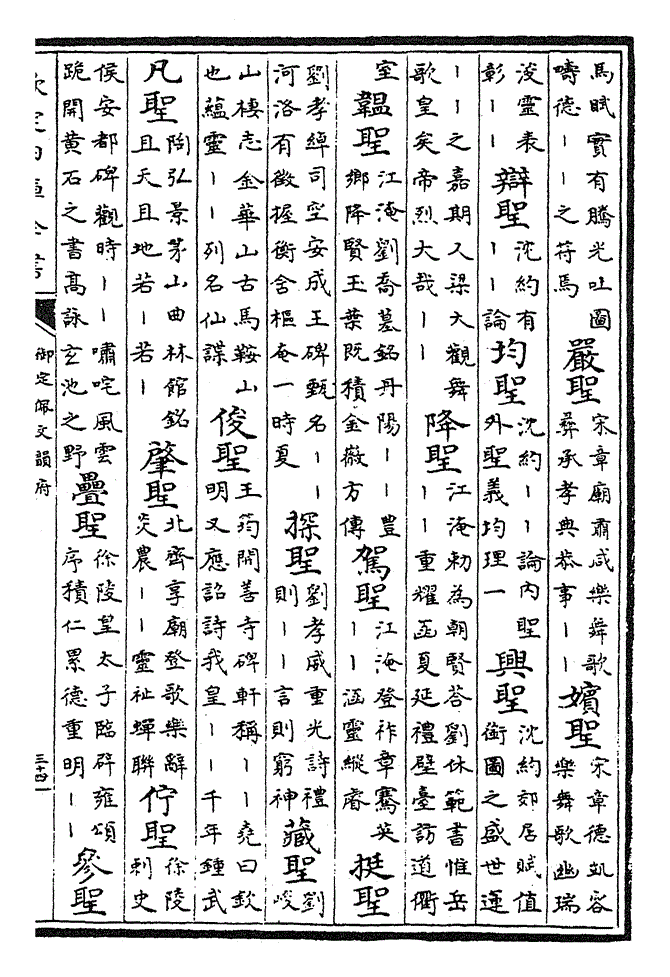 馬賦實有騰光吐圖
疇德｜｜之符焉
嚴聖
宋章廟肅咸樂舞歌
彞承孝典恭事｜｜
嬪聖
宋章德凱容
樂舞歌幽瑞
浚靈表
彰｜｜
辯聖
沈約有
｜｜論
均聖
沈約｜｜論内聖
外聖義均理一
興聖
沈約郊居賦值
銜圖之盛世運
｜｜之嘉期又梁大觀舞
歌皇矣帝烈大哉｜｜
降聖
江淹勅為朝賢荅劉休範書惟岳
｜｜重耀函夏延禮壁臺訪道衢
室
韞聖
江淹劉喬墓銘丹陽｜｜豐
鄉降賢玉葉既積金徽方傳
駕聖
江淹登祚章騫英
｜｜涵靈縱睿
挺聖
劉孝綽司空安成王碑甄名｜｜
河洛有徵握衡舍樞奄一時夏
探聖
劉孝威重光詩禮
則｜｜言則窮神
藏聖
劉
峻
山棲志金華山古馬鞍山
也蘊靈｜｜列名仙諜
俊聖
王筠開善寺碑軒稱｜｜堯曰欽
明又應詔詩我皇｜｜千年鍾武
凡聖
陶弘景茅山曲林館銘
且天且地若｜若｜
肇聖
北齊享廟登歌樂辭
炎農｜｜靈祉蟬聯
佇聖
徐陵
刺史
侯安都碑觀時｜｜嘯咤風雲
跪開黄石之書高詠玄池之野
疊聖
徐陵皇太子臨辟雍頌
序積仁累德重明｜｜
參聖
欽定四庫全書
御定佩文韻府